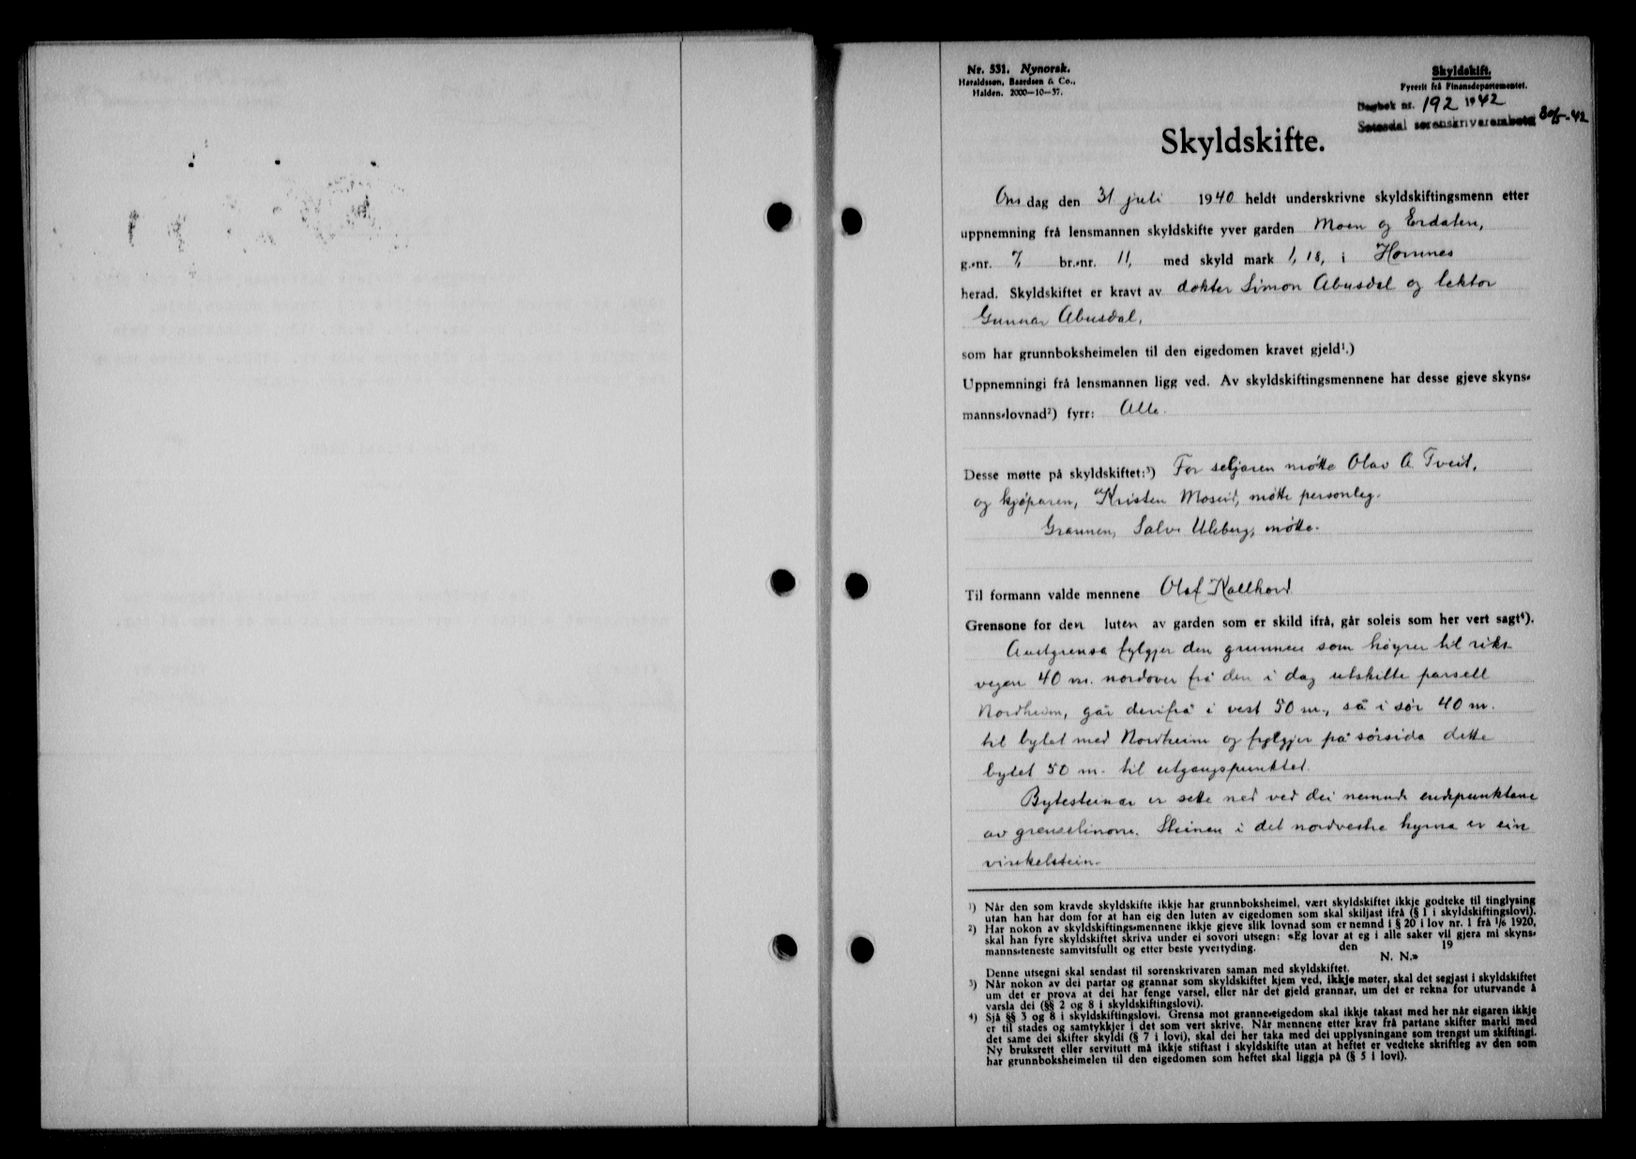 Nr. 531. Nynorsk.
Haraldssøn, Baardsen & Co.,
Halden. 2000—10—37.
Skyldskift.
Fyresit frå Finansdepartementet.
Dagbok nr. 192 1942
Setesdal sorenskrivarembete 30/5-42
Skyldskifte.
Onsdag den 31 juli 1940 heldt underskrivne skyldskiftingsmenn etter
uppnemning frå lensmannen skyldskifte yver garden Moen og Erdalen,
g.-nr. 7, br.-nr. 11, med skyld mark 1,18, i Hornnes
herad. Skyldskiftet er kravt av dokter Simon Abusdal og lektor
Gunnar Abusdal,
som har grunnboksheimelen til den eigedomen kravet gjeld¹.)
Uppnemningi frå lensmannen ligg ved. Av skyldskiftingsmennene har desse gjeve skyns-
manns-lovnad²) fyrr: Alle.
Desse møtte på skyldskiftet:³) For seljaren møtte Olav A. Tveit,
og kjøparen, Kristen Moseid, møtte personleg.
Grannen, Salve Uleberg, møtte.
Til formann valde mennene Olaf Kallhovd
Grensone for den luten av garden som er skild ifrå, går soleis som her vert sagt⁴).
Austgrensa fylgjer den grunnen som høyrer til riks-
vegen 40 m. nordover frå den i dag utskilte parsell
Nordheim, går derifrå i vest 50 m., så i sør 40 m.
til bytet med Nordheim og fylgjer på sørsida dette
bytet 50 m. til utgangspunktet.
Bytesteinar er sette ned ved dei nemnde endepunktane
av grenselinone. Steinen i det nordvestre hyrna er ein
vinkelstein.
¹) Når den som kravde skyldskifte ikkje har grunnboksheimel, vært skyldskiftet ikkje godteke til tinglysing
utan han har dom for at han eig den luten av eigedomen som skal skiljast ifrå (§ 1 i skyldskiftingslovi).
²) Har nokon av skyldskiftings-mennene ikkje gjeve slik lovnad som er nemnd i § 20 i lov nr. 1 frå 1/6 1920,
skal han fyre skyldskiftet skriva under ei sovori utsegn: «Eg lovar at eg i alle saker vil gjera mi skyns-
manns-teneste samvitsfullt og etter beste yvertyding. den 19
N. N.»
Denne utsegni skal sendast til sorenskrivaren saman med skyldskiftet.
³) Når nokon av dei partar og grannar som skyldskiftet kjem ved, ikkje møter, skal det segjast i skyldskiftet
um det er prova at dei har fenge varsel, eller når det gjeld grannar, um det er rekna for uturvande å
varsla dei (§§ 2 og 8 i skyldskiftingslovi).
⁴) Sjå §§ 3 og 8 i skyldskiftingslovi. Grensa mot granne-eigedom skal ikkje takast med her når eigaren ikkje
er til stades og samtykkjer i det som vert skrive. Når mennene etter krav frå partane skifter marki med
det same dei skifter skyldi (§ 7 i lovi), skal dei her taka med dei upplysningane som trengst um skiftingi.
Ny bruksrett eller servitutt må ikkje stiftast i skyldskifte utan at heftet er vedteke skriftleg av den som
har grunnboksheimelen til den eigedomen som heftet skal liggja på (§ 5 i lovi).